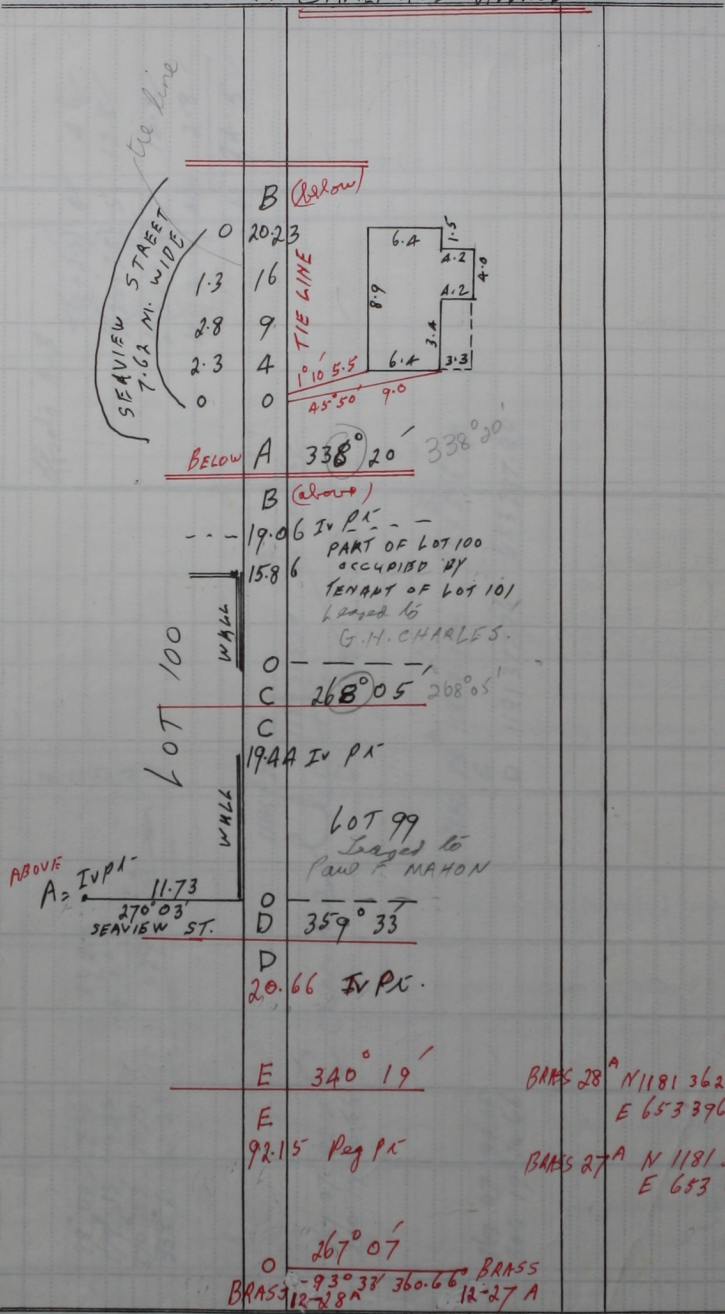 tie line
B (below)
SEAVIEW STREET
7.62 M. WIDE
0 20.23
1.3 16
2.8 9
2.3 4
0 0
TIE LINE
6.4
1.5
4.2
4.0
8.9
4.2
3.4
6.4 3.3
1°10' 5.5
45°50' 9.0
BELOW A 338°20' 338°20'
B (above)
19.06 Iv Pt
15.86
PART OF LOT 100
OCCUPIED BY
TENANT OF LOT 101
Leased to
G.H. CHARLES.
WALL
LOT 100
0
C 268°05' 268°05'
C
19.44 Iv Pt
WALL
LOT 99
Leased to
Paul F. MAHON
ABOVE
A = Iv Pt
11.73 0
270°03'
SEAVIEW ST. D 359°33'
D
20.66 Iv Pt.
E 340°19'
BRASS 28A N 1181 362
E 653 396
E
92.15 Peg Pt
BRASS 27A N 1181.
E 653
267°07'
0 BRASS
BRASS 12-28A -93°33' 360.66 12-27A